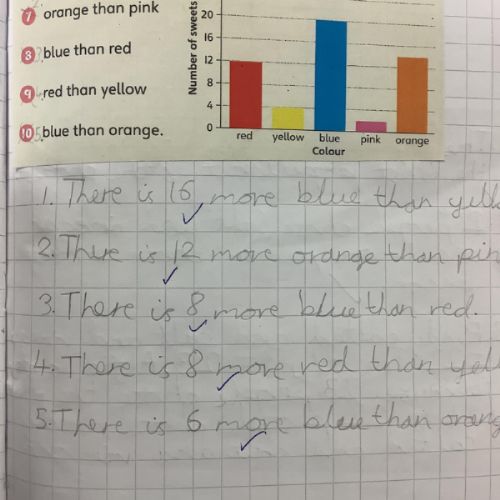 7 orange than pink
8 blue than red
9 red than yellow
10 blue than orange.
Number of sweets
20
16
12
8
4
0
red yellow blue pink orange
Colour
1. There is 16 more blue than yell
2. There is 12 more orange than pin
3. There is 8 more blue than red.
4. There is 8 more red than yel
5. There is 6 more blue than orang